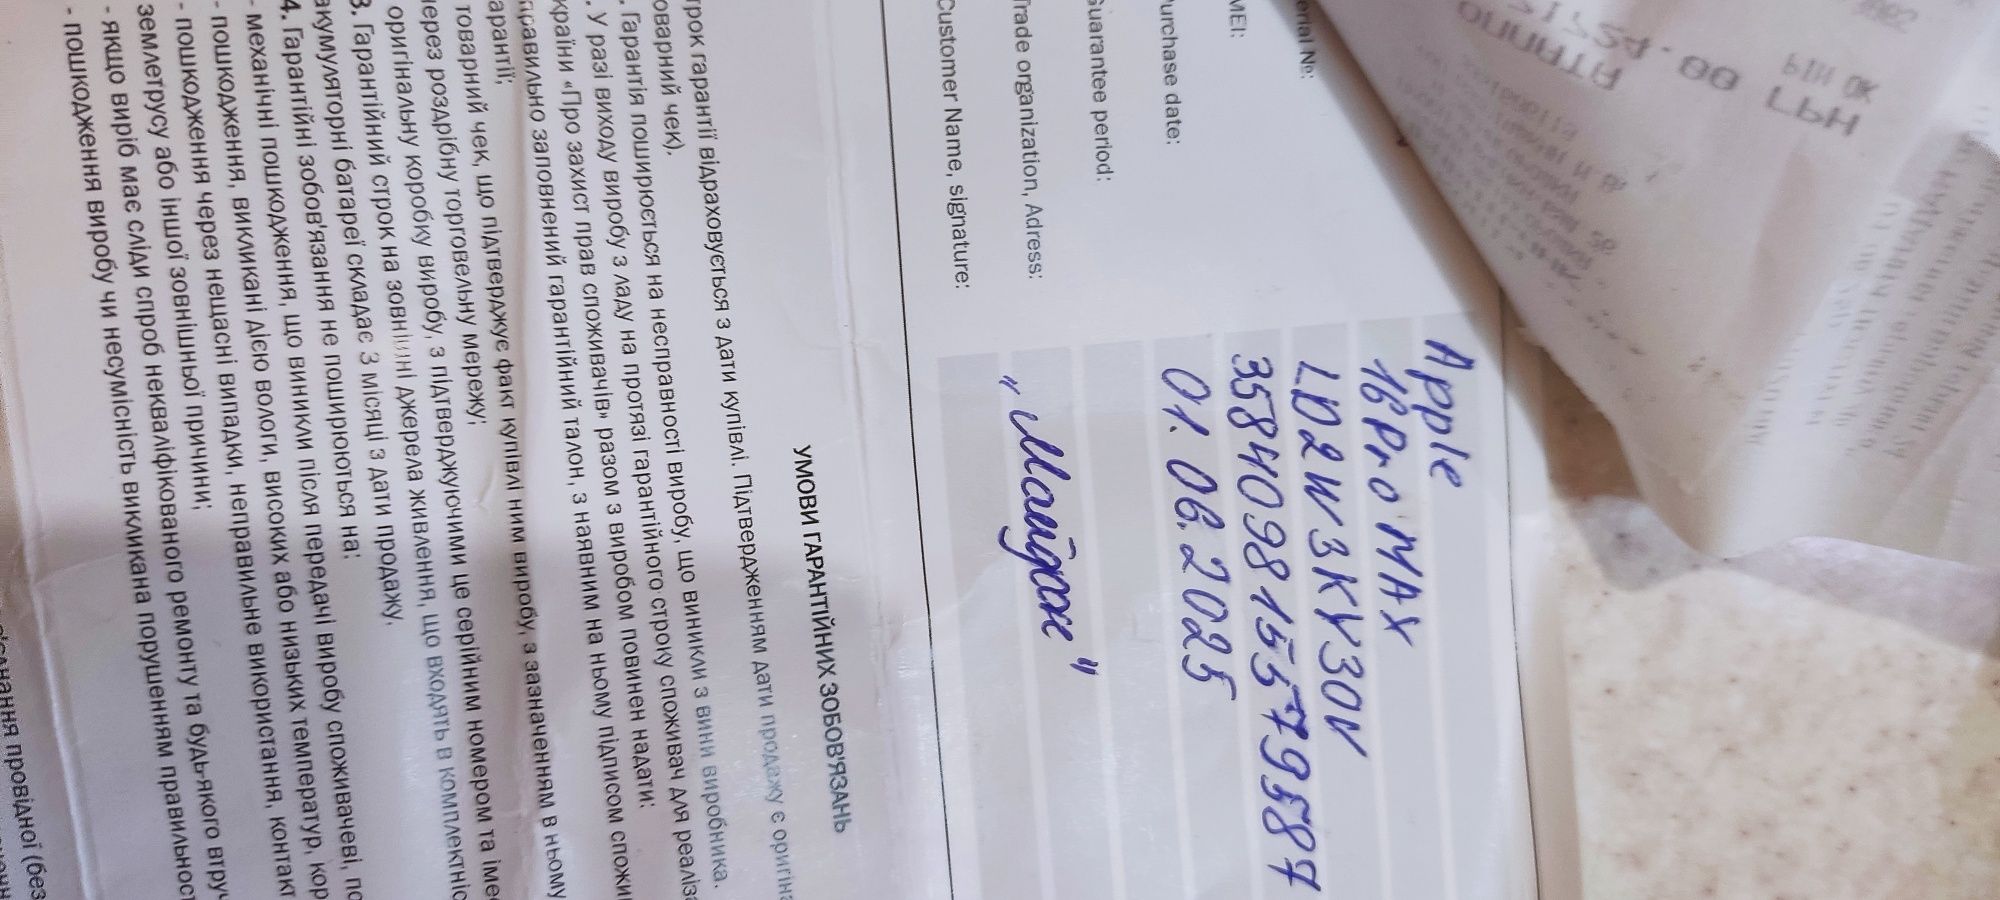 Apple
16 Pro MAX
erial №: LD2W3KV30V
MEI: 358409815579587
urchase date: 01.06.2025
Guarantee period:
Trade organization, Adress: "Имидж"
Customer Name, signature:
УМОВИ ГАРАНТІЙНИХ ЗОБОВ'ЯЗАНЬ
трок гарантії відраховується з дати купівлі. Підтвердженням дати продажу є оригіна
оварний чек).
. Гарантія поширюється на несправності виробу, що виникли з вини виробника.
. У разі виходу виробу з ладу на протязі гарантійного строку споживач для реаліза
країни «Про захист прав споживачів» разом з виробом повинен надати:
правильно заповнений гарантійний талон, з наявним на ньому підписом спожи
арантії;
товарний чек, що підтверджує факт купівлі ним виробу, з зазначенням в ньому
через роздрібну торговельну мережу;
оригінальну коробку виробу, з підтверджуючими це серійним номером та іме
3. Гарантійний строк на зовнішні джерела живлення, що входять в комплектніс
акумуляторні батареї складає 3 місяці з дати продажу.
4. Гарантійні зобов'язання не поширюються на:
- механічні пошкодження, що виникли після передачі виробу споживачеві, по
- пошкодження, викликані дією вологи, високих або низьких температур, кор
- пошкодження через нещасні випадки, неправильне використання, контакт
землетрусу або іншої зовнішньої причини;
- якщо виріб має сліди спроб некваліфікованого ремонту та будь-якого втруч
- пошкодження виробу чи несумісність викликана порушенням правильност
провідної (без